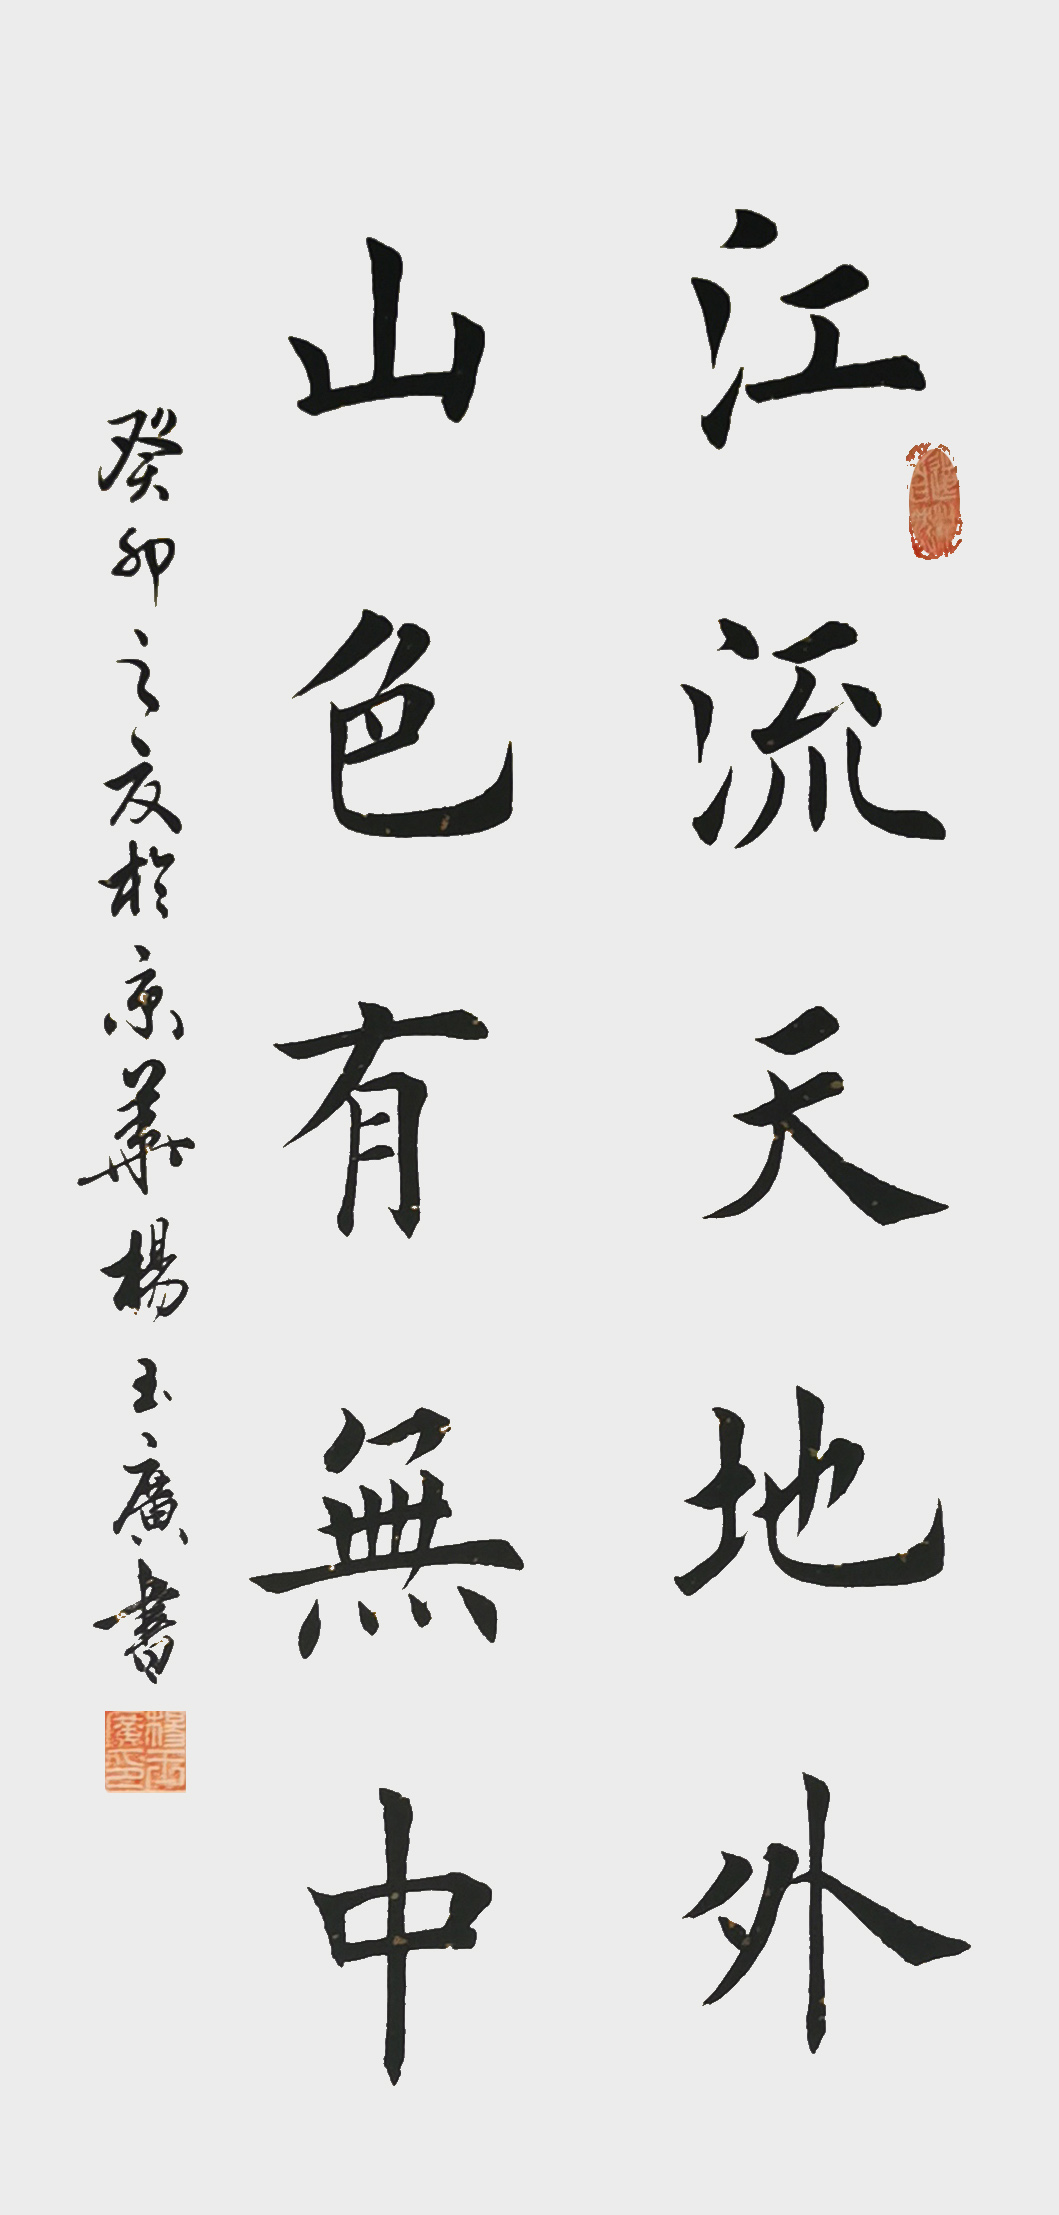 江流天地外
山色有無中
癸卯之夏於京華楊玉廣書